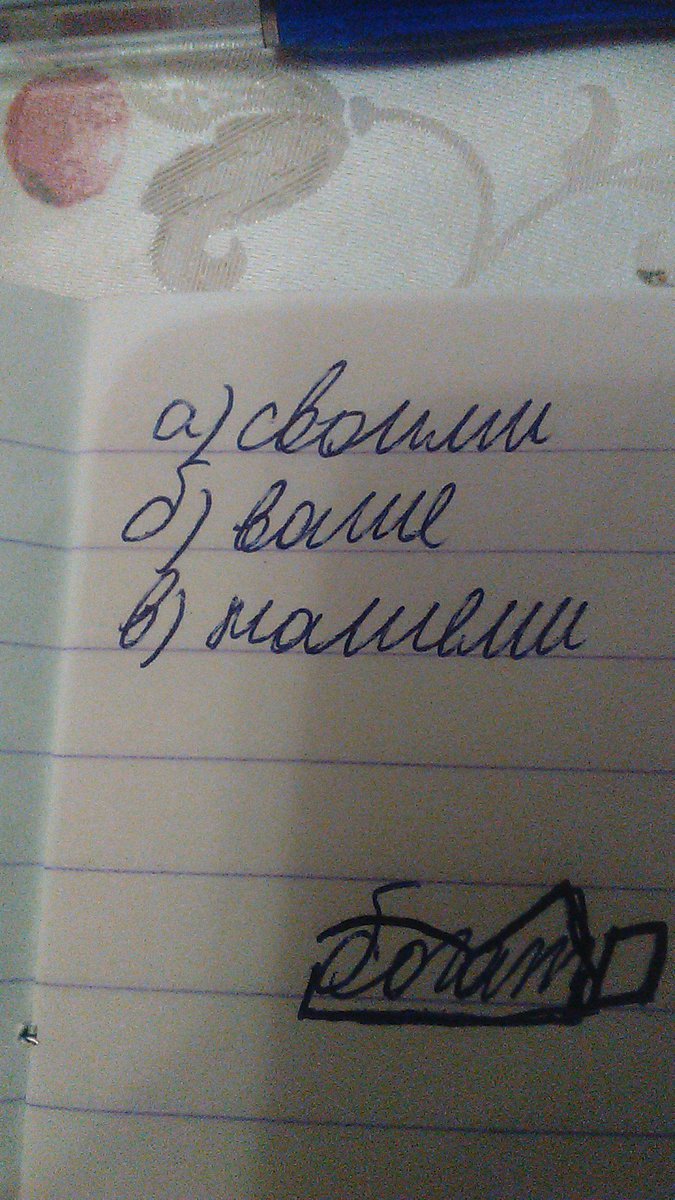 а) своими
б) ваше
в) нашеми
богат